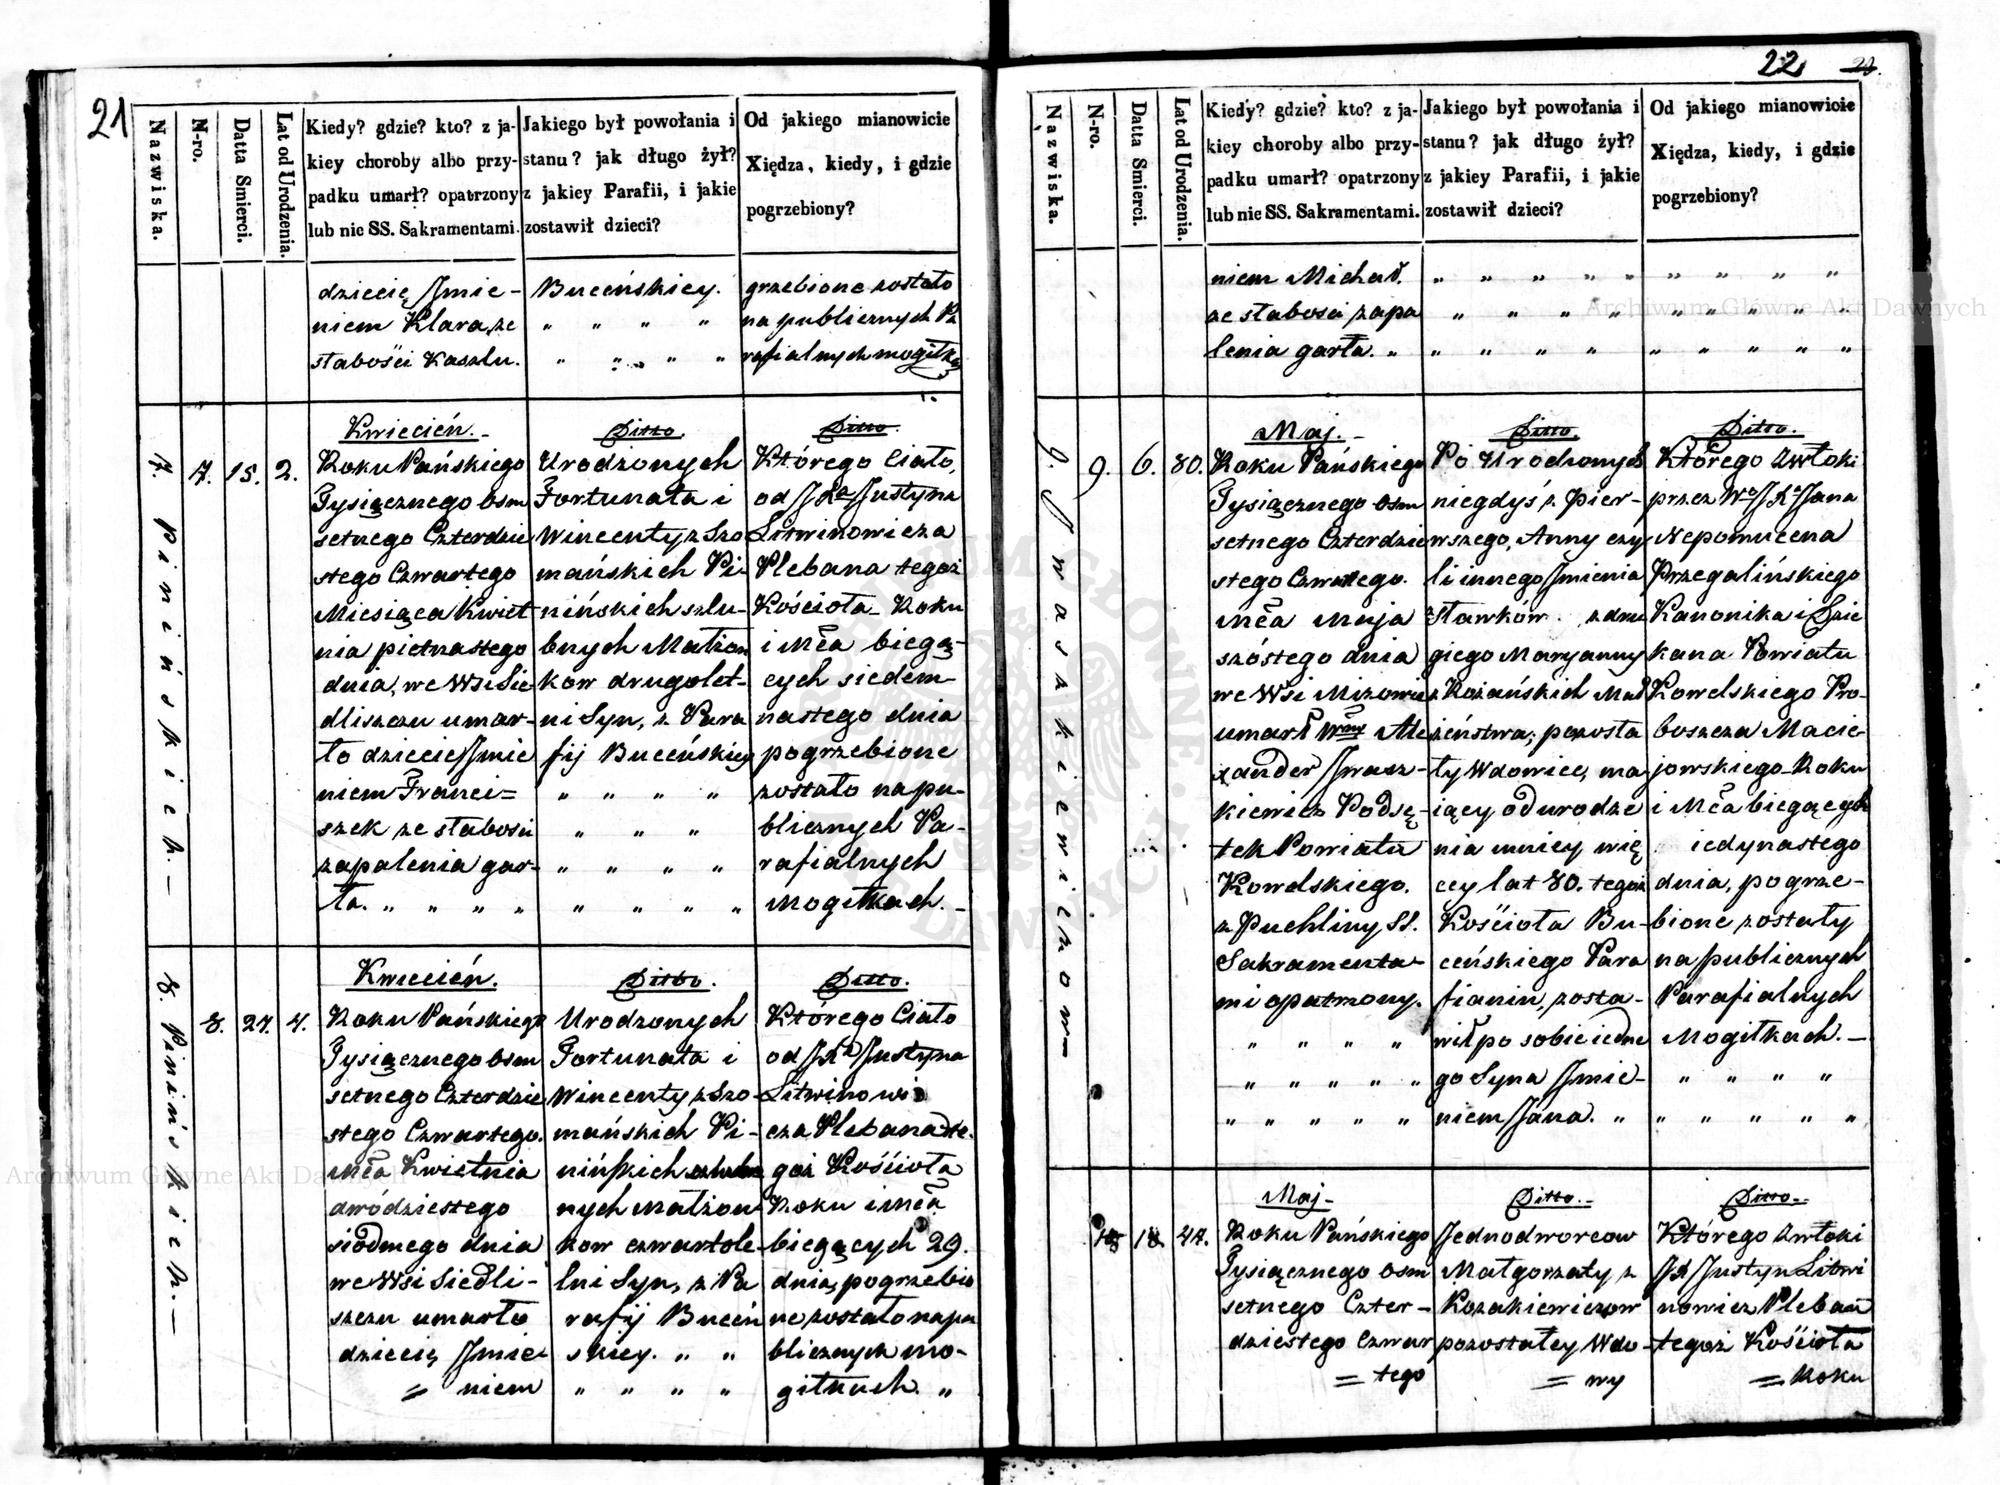 21
Nazwiska.
N-ro.
Datta Smierci.
Lat od Urodzenia.
Kiedy? gdzie? kto? z ja-
kiey choroby albo przy-
padku umarł? opatrzony
lub nie SS. Sakramentami.
Jakiego był powołania i
stanu? jak długo żył?
z jakiey Parafii, i jakie
zostawił dzieci?
Od jakiego mianowicie
Xiędza, kiedy, i gdzie
pogrzebiony?
dziecię Jmie-
niem Klara, ze
słabości Kaszlu.
Buceńskiey.
" " " "
" " " "
grzebione zostało
na publicznych Pa
rafialnych mogiłka
7. Pinińskich.—
7.
15.
2.
Kwiecień.-
Roku Pańskiego
Tysiącznego osm
setnego Czterdzie
stego Czwartego
Miesiąca Kwiet
nia piętnastego
dnia, we Wsi Sie
dliszczu umar-
ło dziecię Jmie
niem Franci=
szek ze słabości
zapalenia gar-
ła. " " " "
Ditto.
Urodzonych
Fortunata i
Wincenty z Szo
mańskich Pi-
nińskich szlu-
bnych Małżon
kow drugolet-
ni Syn, z Para
fij Buceńskiey
" " " "
" " "
" " " "
" " " "
Ditto.
Którego Ciało,
od JXa Justyna
Litwinowicza
Plebana tegoż
Kościoła Roku
i Mca bieżą-
cych siedem-
nastego dnia
pogrzebione
zostało na pu-
blicznych Pa-
rafialnych
Mogiłkach.-
8. Pinińskich.—
8.
27.
4.
Kwiecień.
Roku Pańskiego
Tysiącznego osm
setnego Czterdzie
stego Czwartego.
Mca Kwietnia
dwódziestego
siódmego dnia
we Wsi Siedli-
szczu umarło
dziecię Jmie-
= niem
Ditto.
Urodzonych
Fortunata i
Wincenty z Szo-
mańskich Pi-
nińskich szlub
nych Małżon
kow czwartole-
tni Syn, z Pa
rafij Buceń
skiey. " "
" " " "
Ditto.
Którego Ciało
od JXa Justyna
Litwinowi
cza Plebana te.
goż Kościoła
Roku i Mca
bieżących 29.
dnia, pogrzebio
ne zostało na pu
blicznych mo-
giłkach. "
22
Nazwiska.
N-ro.
Datta Smierci.
Lat od Urodzenia.
Kiedy? gdzie? kto? z ja-
kiey choroby albo przy-
padku umarł? opatrzony
lub nie SS. Sakramentami.
Jakiego był powołania i
stanu? jak długo żył?
z jakiey Parafii, i jakie
zostawił dzieci?
Od jakiego mianowicie
Xiędza, kiedy, i gdzie
pogrzebiony?
niem Michał.
ze słabosci zapa
lenia garła. "
" " " " "
" " " "
" " " "
" " " "
" " " "
" " " " "
9. Jwaszkiewiczow
9.
6.
80.
Maj.-
Roku Pańskiego
Tysiącznego osm
setnego Czterdzie
stego Czwartego.
Mca Maja
szóstego dnia
we Wsi Mizowie
umarł Wny Ale
xander Jwasz-
kiewicz Podsę-
tek Powiatu
Kowelskiego.
z Puchliny SS.
Sakramenta-
mi opatrzony.
" " " "
" " " " "
" " " " "
Ditto.
Po Urodzonych
niegdyś z pier-
wszego, Anny czy
li innego Jmienia
z Ławków. z dru
giego Maryanny
z Rożańskich Mał
żeństwa, pozosta
ły Wdowiec, ma
iący od urodze
nia mniey wię
cey lat 80. tegoż
Kościoła Bu-
ceńskiego Para
fianin, zosta-
wił po sobie iedne
go Syna Jmie-
niem Jána. "
Ditto.
Którego zwłoki
przez Wo JXa Jana
Nepomucena
Przegalińskiego
Kanonika i Dzie
kana Powiatu
Kowelskiego Pro-
boszcza Macie-
jowskiego Roku
i Mca bieżących
iedynastego
dnia, pogrze-
bione zostały
na publicznych
Parafialnych
Mogiłkach.—
" " " "
" " " " "
18.
47.
Maj-
Roku Pańskiego
Tysiącznego osm
setnego Czter-
dziestego Czwar
= tego
Ditto.-
Jednodworcow
Małgorzaty z
Kozakiewiczow
pozostałey Wdo-
= wy
Ditto.-
Którego zwłoki
JX Justyn Litwi
nowicz Pleban
tegoż Kościoła
= Roku
Archiwum Główne Akt Dawnych
Archiwum Główne Akt Dawnych
ARCHIWUM GŁÓWNE AKT DAWNYCH